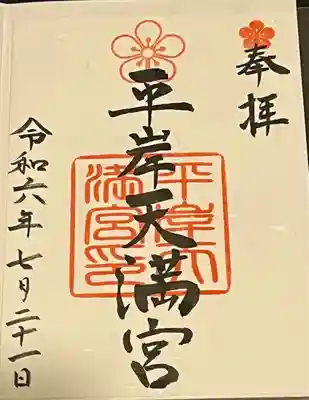 奉拝
平岸天満宮
平岸天満宮印
令和六年七月二十一日